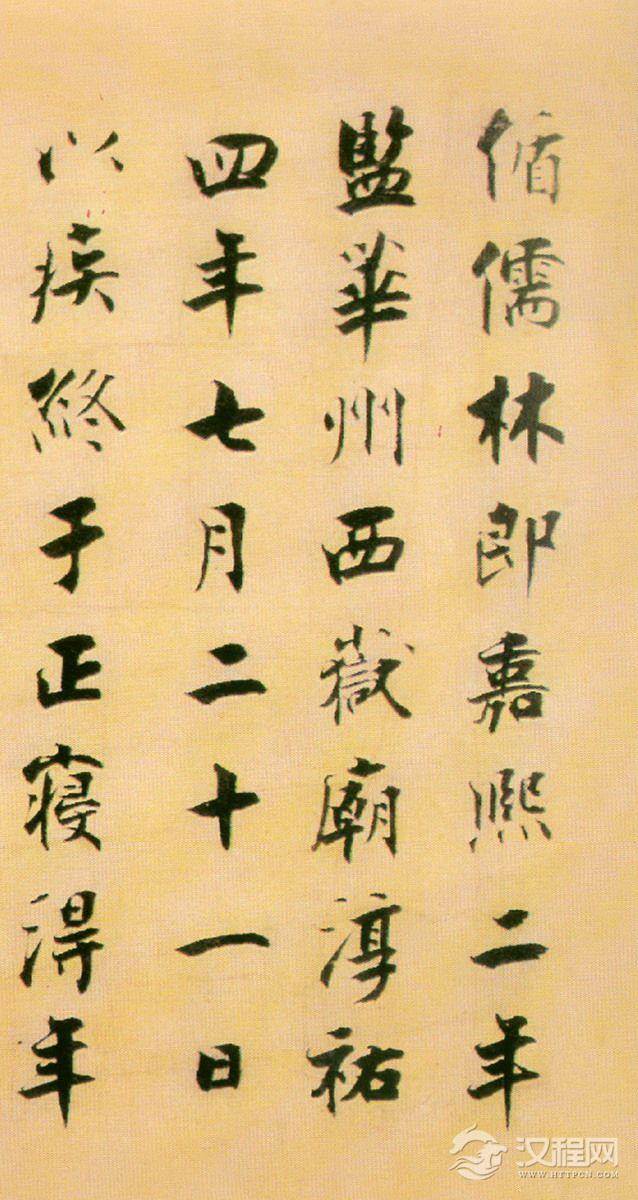 循儒林郎嘉熙二年
監華州西嶽廟淳祐
四年七月二十一日
以疾終于正寢得年
汉程网
WWW.HTTPCN.COM